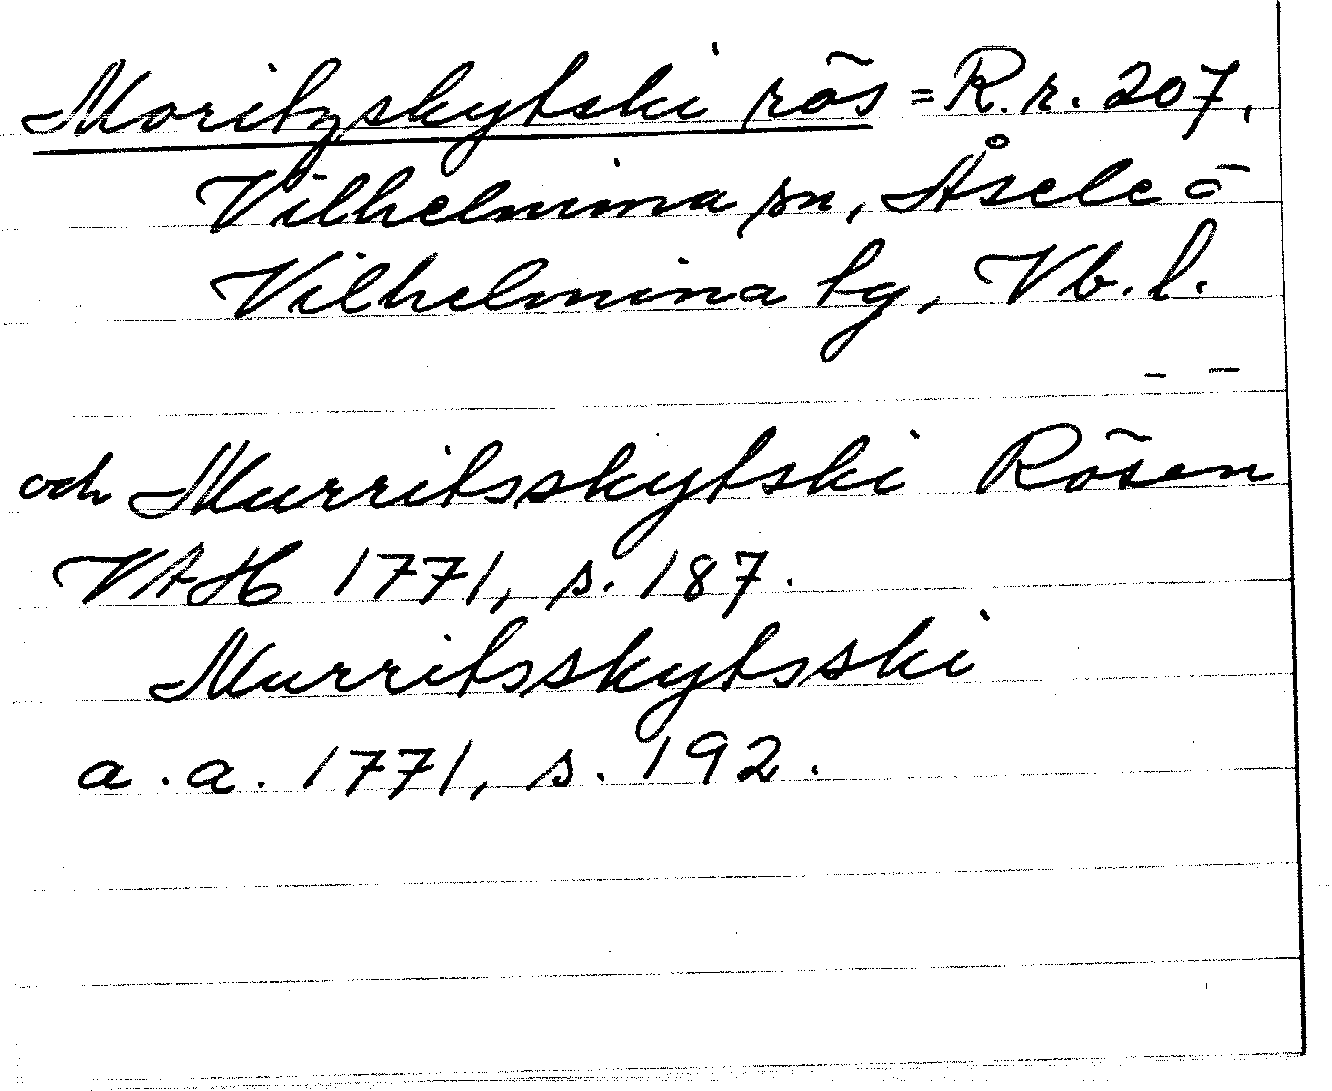 Moritzskytski rös = R.r. 207,
Vilhelmina sn, Åsele ö
Vilhelmina by, Vb. l.
- -
och Murritsskytski Rösen
VAH 1771, s. 187.
Murritsskytsski
a.a. 1771, s. 192.